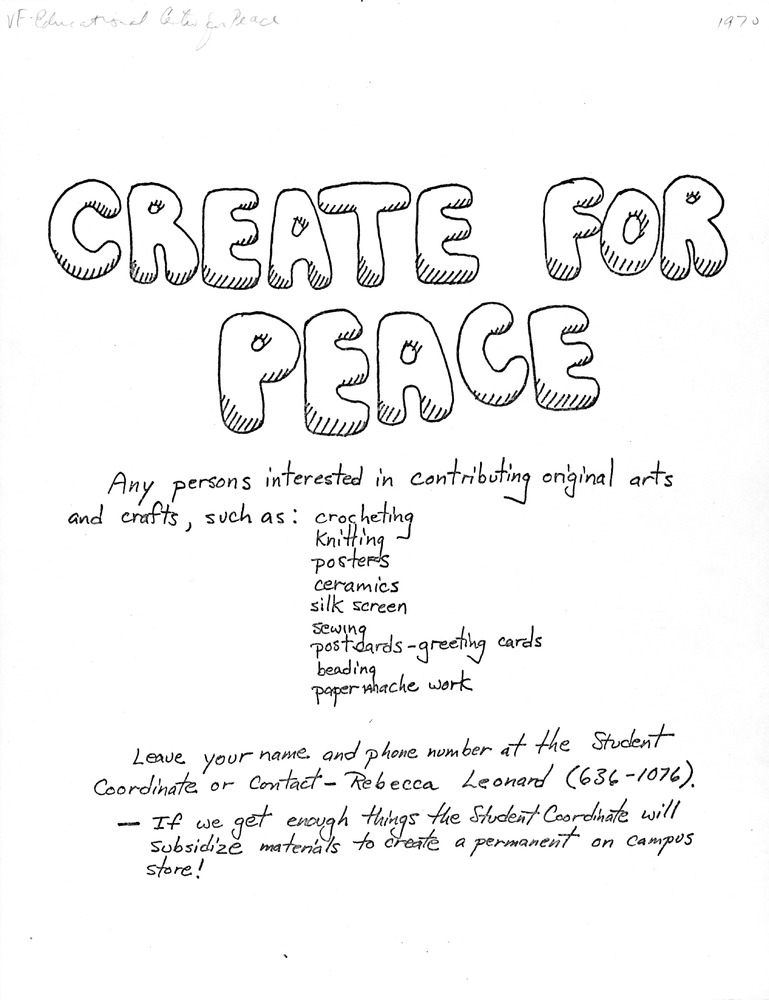 VF-Educational Center for Peace
1970
CREATE FOR
PEACE
Any persons interested in contributing original arts
and crafts, such as: crocheting
Knitting
posters
ceramics
silk screen
sewing
postcards-greeting cards
beading
paper mache work
Leave your name and phone number at the Student
Coordinate or Contact- Rebecca Leonard (636-1076).
— If we get enough things the Student Coordinate will
subsidize materials to create a permanent on campus
store!